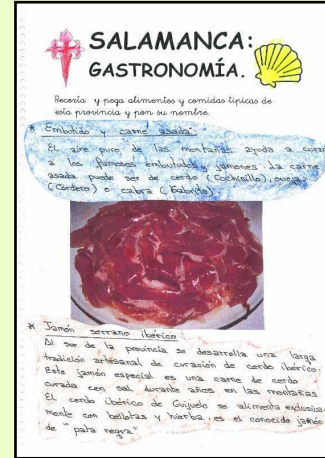 SALAMANCA:
GASTRONOMÍA.
Recorta y pega alimentos y comidas típicas de
esta provincia y pon su nombre.
* Embutido y carne asada:
El aire puro de las montañas ayuda a curar
los famosos embutidos y jamones. La carne
asada puede ser de cerdo (Cochinillo), oveja
(Cordero) o cabra (Cabrito).
* Jamón serrano ibérico:
Al sur de la provincia se desarrolla una larga
tradición artesanal de curación de cerdo ibérico.
Este jamón especial es una carne de cerdo
curada con sal durante años en las montañas
El cerdo ibérico de Guijuelo se alimenta exclusiva-
mente con bellotas y hierba, es el conocido jamón
de "pata negra".